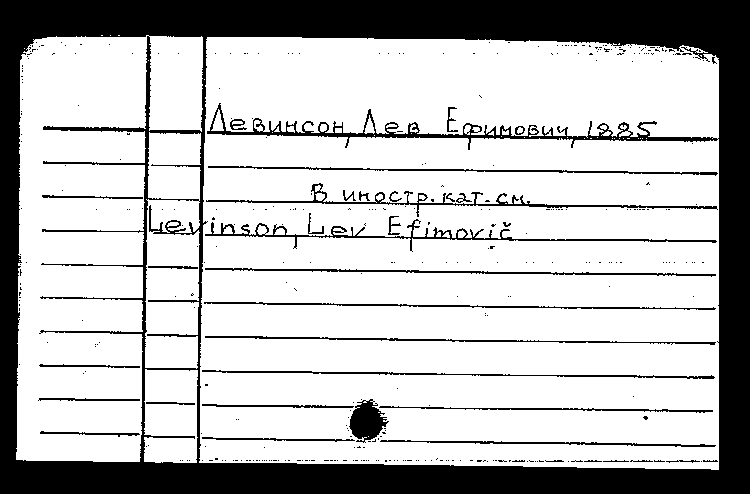 Левинсон, Лев Ефимович, 1885
В иностр. кат. см.
Levinson, Lev Efimovič